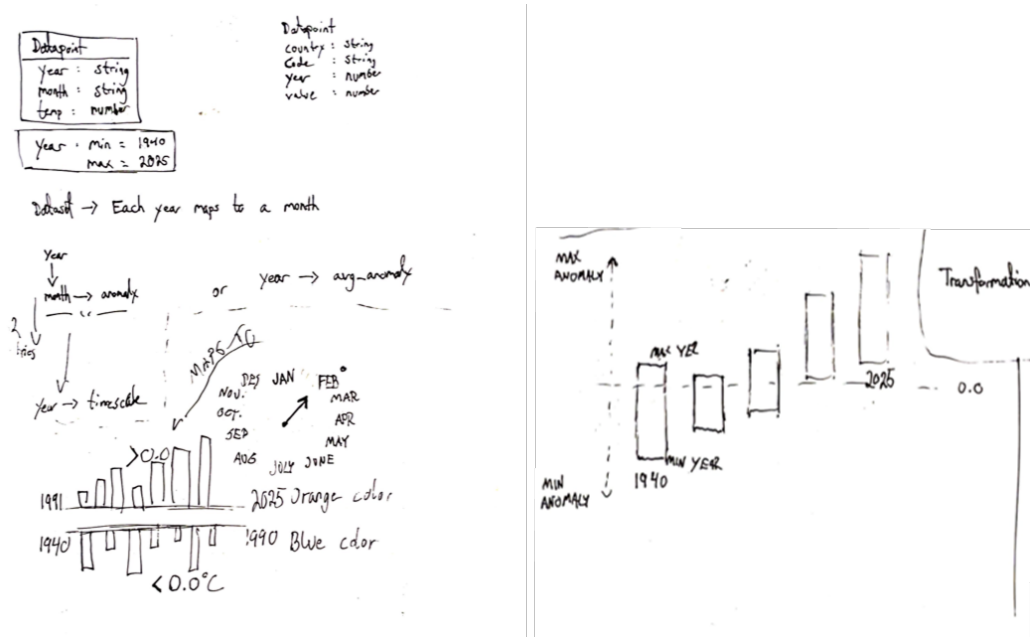 Datapoint
year : string
month : string
temp : number
year : min = 1940
max = 2025
Datapoint
country : string
Code : string
year : number
value : number
Dataset → Each year maps to a month
year
month → anomaly
or
year → avg_anomaly
2
year → timescale
MAPS TO
DES
JAN
FEB
MAR
APR
MAY
JUNE
JULY
AUG
SEP
OCT.
NOV.
>0.0
1991
2025 Orange color
1940
1990 Blue color
<0.0°C
MAX
ANOMALY
MAX YER
MIN YEAR
1940
2025
0.0
MIN
ANOMALY
Transformation